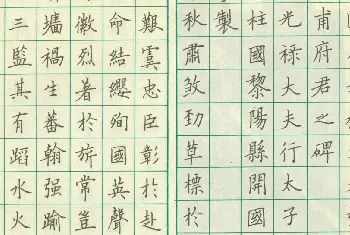 甫府君之碑
光禄大夫行太子
柱國黎陽縣開國
製
秋肅煞勁草標於
艱虞忠臣彰於赴
命結纓殉國英聲
徽烈著於旂常豈
牆禍生蕃翰强踰
三監其有蹈水火